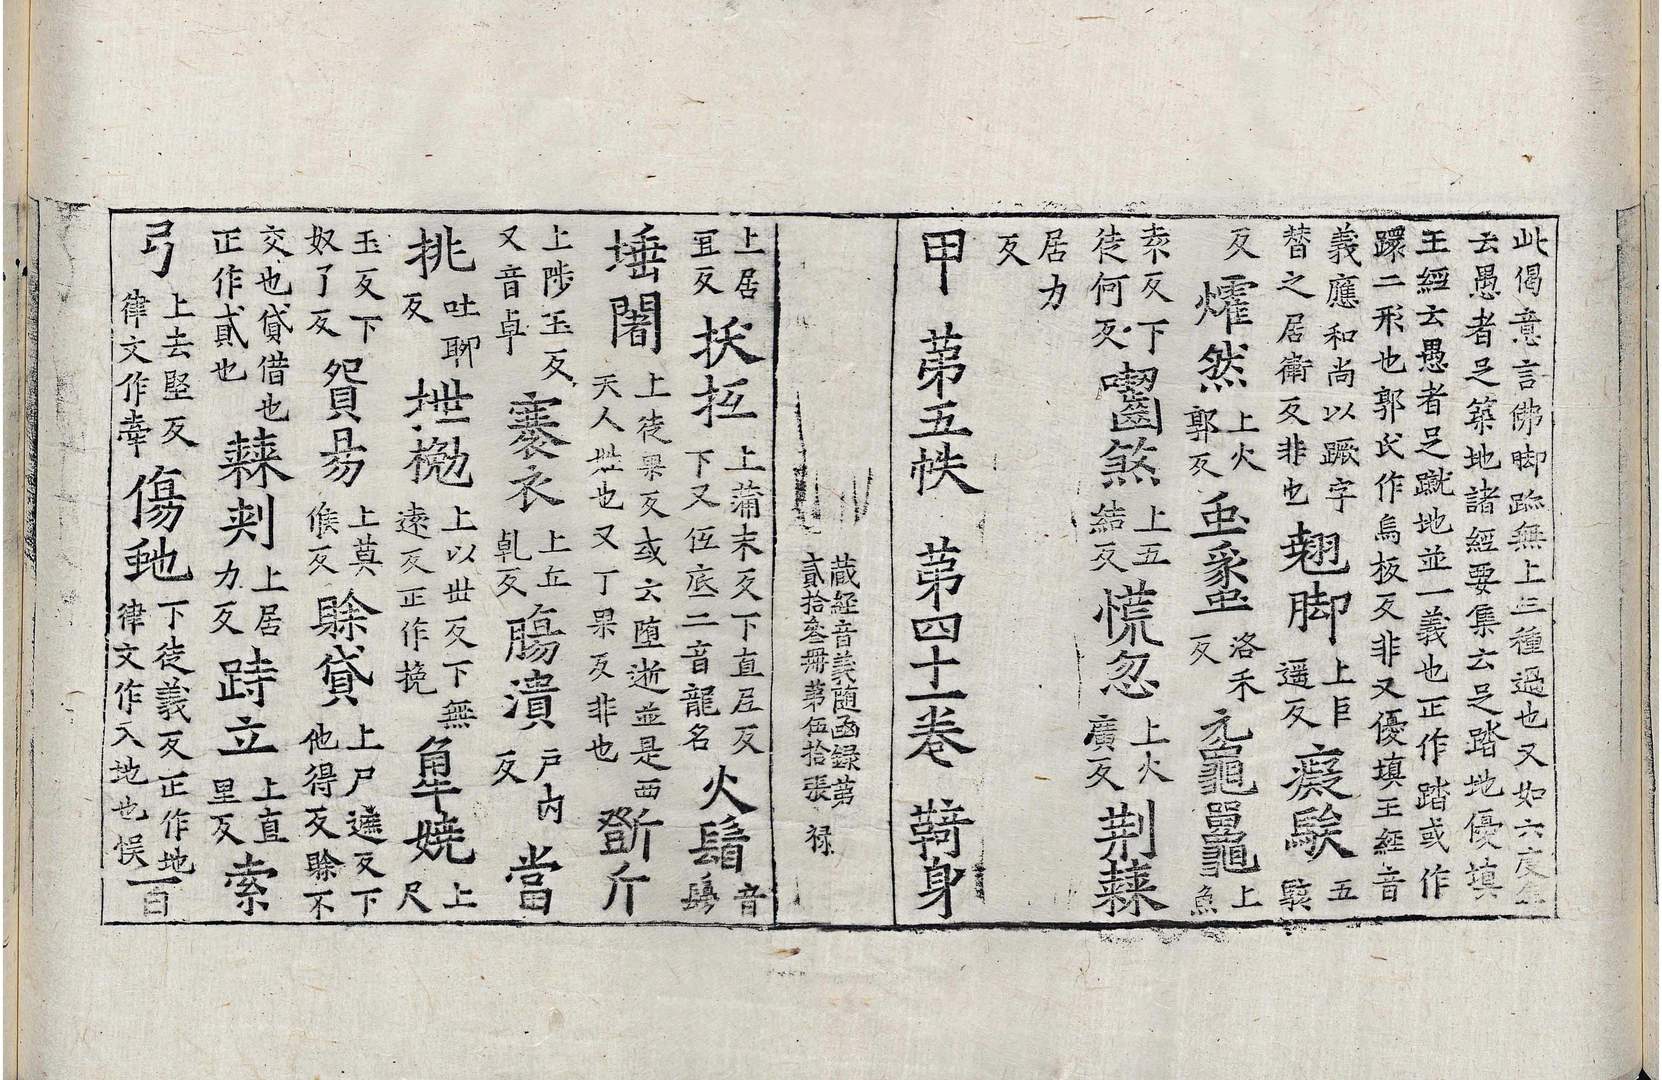 此偈意言佛脚跡無上三種過也又如六度集
云愚者足築地諸經要集云足踏地優填
王經云愚者足蹴地並一義也正作踏或作
躁二形也郭氏作烏板反非又優填王經音
義應和尚以蹶字
替之居衛反非也
翹脚
上巨
遥反
癡騃
五
駭
反
燿然
上火
郭反
虿蠡
洛禾
反
元鼀鼉
上
魚
袁反下
徒何反
囓齒煞
上五
結反
慌忽
上火
廣反
荆棘
居力
反
甲 第五帙 第四十一卷 鞫身
藏經音義随函録第
貳拾叁冊第伍拾張 禄
上居
宜反
拔㧓
上蒲末反下直尼反
下又伍底二音龍名
火鬙
音
埵闍
上徒果反或云堕逝並是西
天人姓也又丁果反非也
斲斤
上陟玉反
又音卓
褰衣
上丘
乹反
膓潰
戸内
反
當
挑
吐聊
反
抴㧪
上以世反下無
遠反正作挽
嬈
上
尺
玉反下
奴了反
貿易
上莫
候反
賖貸
上尸遮反下
他得反賖不
交也貸借也
正作貣也
棘刾
上居
力反
跱立
上直
里反
索
弓
上去堅反
律文作牽
傷虵
下徒義反正作地
律文作入地也悮
一百